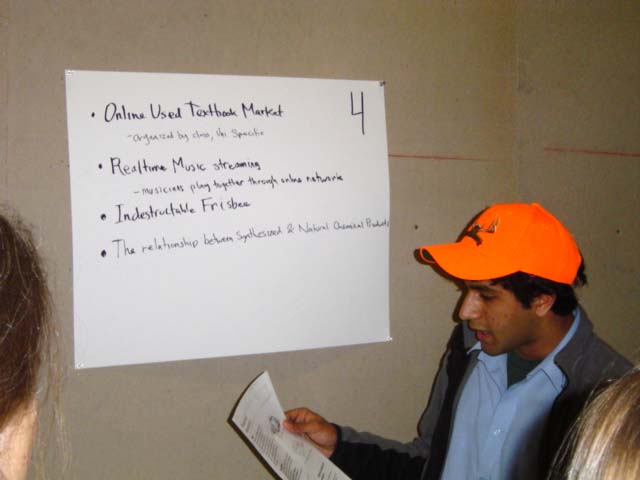 4
• Online Used Textbook Market
- organized by class, Uni Specific
• Realtime Music streaming
- musicians play together through online networks
• Indestructable Frisbee
• The relationship between Synthesized & Natural Chemical Products